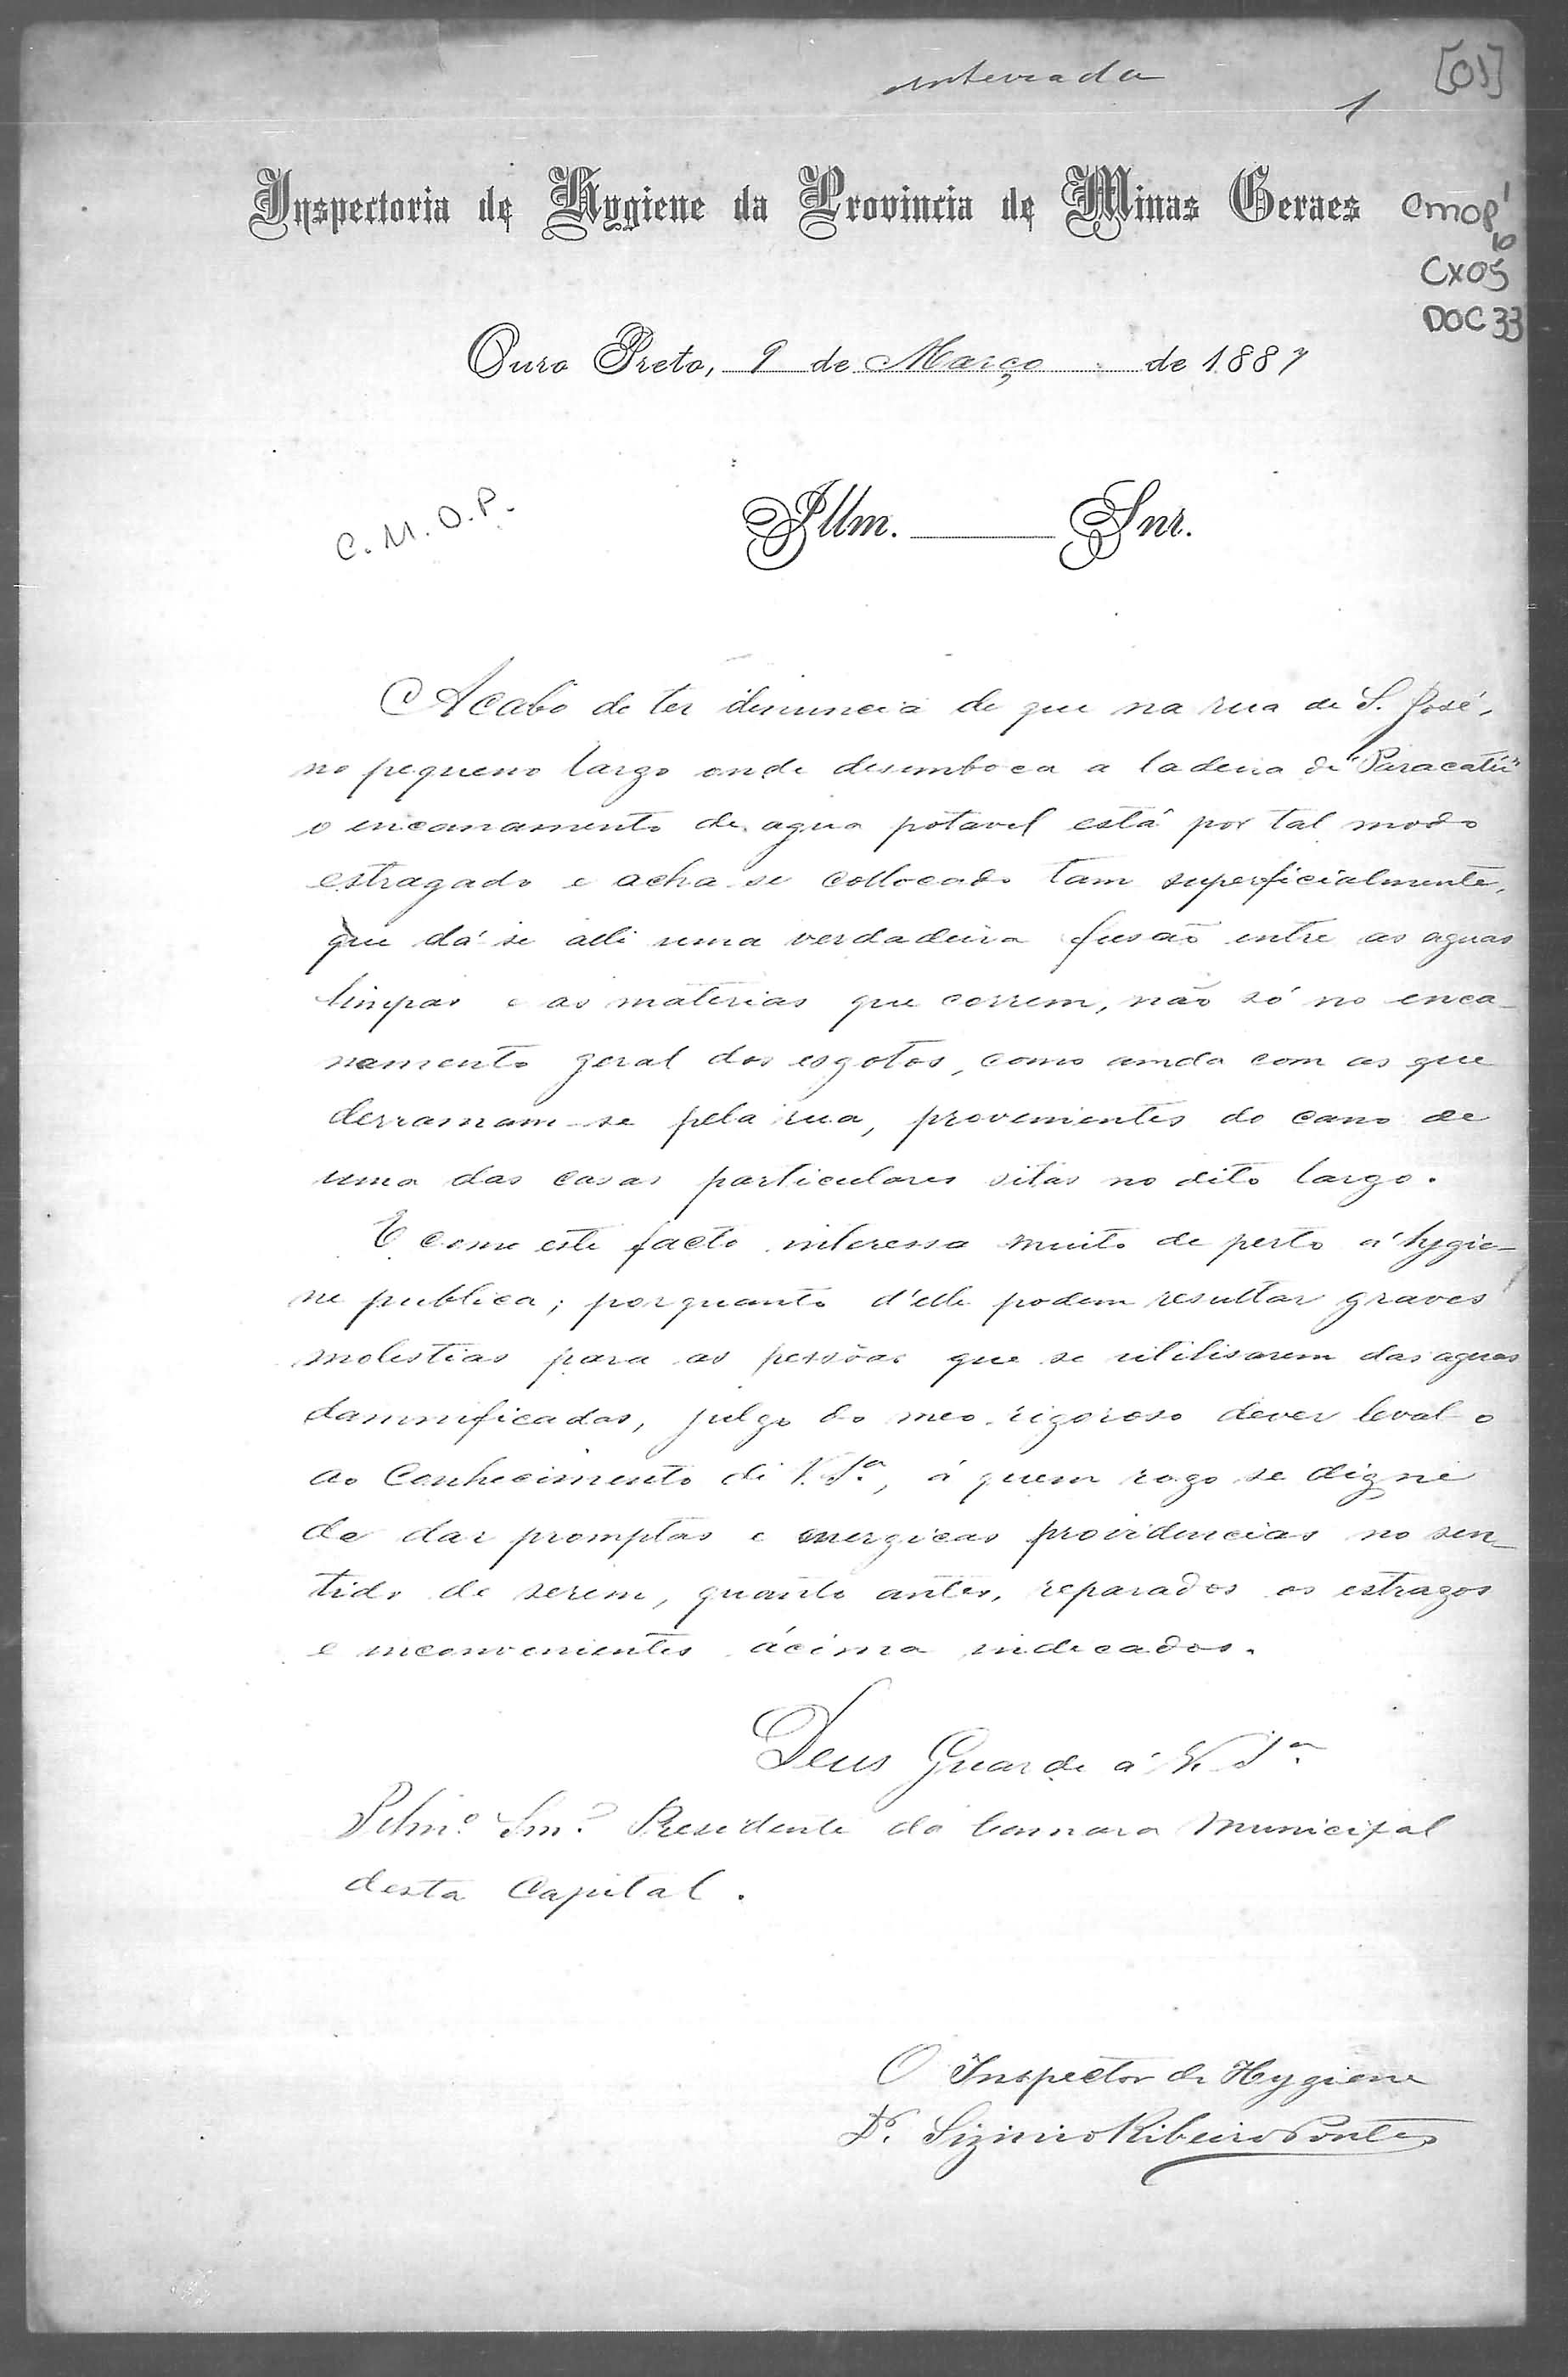 inteirada
[01]
1
Inspectoria de Hygiene da Provincia de Minas Geraes
CMOP
CX05
DOC 33
Ouro Preto, 9 de Março de 1889
C. M. O. P.
Illm. Snr.
Acabo de ter denuncia de que na rua de S. José,
no pequeno largo onde desemboca a ladeira de "Paracatú"
o encanamento de agua potavel está por tal modo
estragado e acha-se collocado tam superficialmente,
que dá-se alli uma verdadeira fusão entre as aguas
limpas e as materias que correm, não só no enca-
namento geral dos esgotos, como ainda com as que
derramam-se pela rua, provenientes do cano de
uma das casas particulares sitas no dito largo.
E como este facto interessa muito de perto á hygie-
ne publica; porquanto d'elle podem resultar graves
molestias para as pessôas que se utilisarem das aguas
damnificadas, julgo do meo rigoroso dever leval-o
ao conhecimento de V. Sª, á quem rogo se digne
de dar promptas e energicas providencias no sen-
tido de serem, quanto antes, reparados os estragos
e inconvenientes ácima indicados.
Deus Guarde á V. Sª
Illmº Snr. Presidente da Camara Municipal
desta Capital.
O Inspector de Hygiene
Dr. Sizinio Ribeiro Pontes